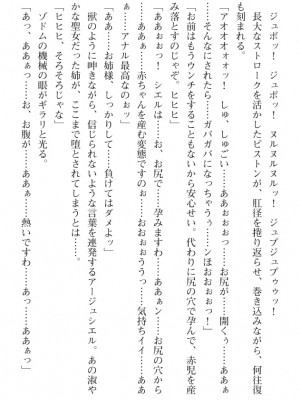 ジュボッ！　ジュボッ！　ヌルヌルヌルッ！　ジュブジュブゥゥッ！
長大なストロークを活かしたピストンが、肛径を捲り返らせ、巻き込みながら、何往復
も刻まれる。
「アオオオォォッ！　しゅ、しゅごい……あああぉぉぉっ……お尻が……開くぅ……ああぁ
……そんなにされたら……ガバガバになっちゃうぅ……ンほおおぉぉっ！」
「お前はもうウンチをすることもないから安心せい。代わりに尻の穴で孕んで、赤児を産
み落とすのじゃぞ、ヒヒヒ」
「あああぉっ……シエルは……お、お尻で……孕みますわ……ああぁン……お尻の穴から
……あおお……赤ちゃんを産む変態ですのぉ……おおぉぉううっ……気持ちイイ……ああぁ
っ……アナル最高なのぉ～っ」
「ああぁ……お姉様、しっかりして……負けてはダメよッ」
獣のように呻きながら、信じられないような言葉を連発するアージュシエル。あの淑や
かな聖女だった姉が、ここまで堕とされてしまうとは……。
「ヒヒヒ、そろそろじゃな」
ゾドムの機械の眼がギラリと光る。
「あっ、あああっっ……お、お腹が……ああぁ……熱いですわ……あっ……ああぁっ」